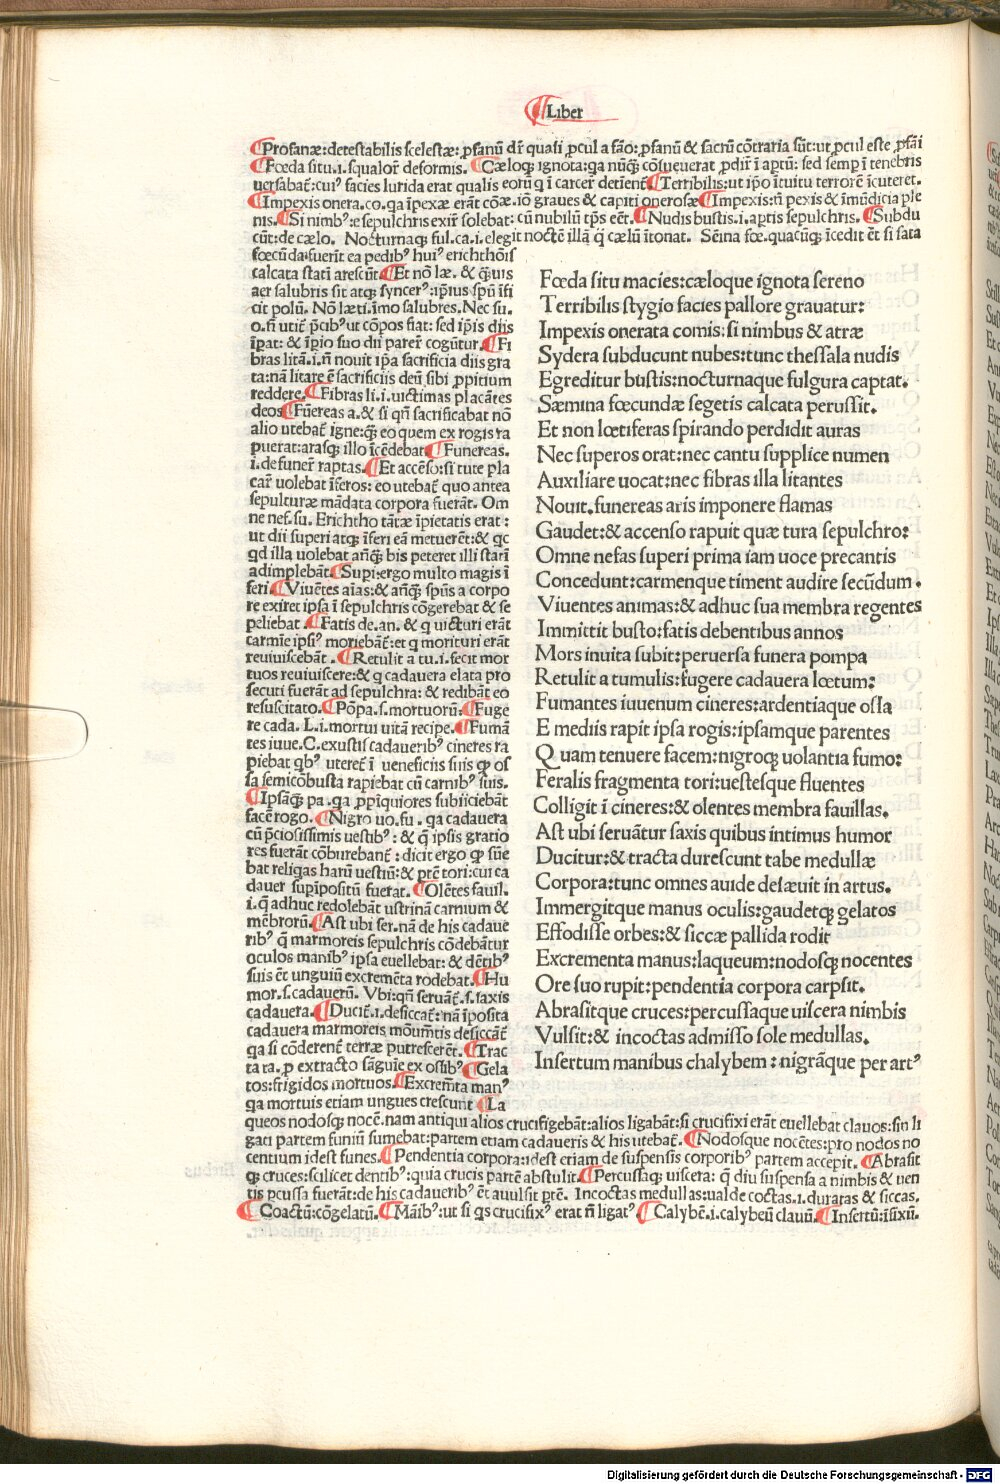 Liber
Profanæ:detestabilis scelestæ: ꝓfanū dr̄ quasi ꝓcul a fāo: ꝓfanū & sacrū cōtraria sūt: ut ꝓcul este ꝓfāi
Fœda situ.i.squalor̄ deformis. Cæloq; ignota:qa nūq̄ cōsueuerat ꝓdir̄ ī aptū: sed semp ī tenebris
uersabat̄:cui⁹ facies lurida erat qualis eorū q ī carcer̄ detienr̄. Terribilis:ut ip̄o ītuitu terrorē īcuteret.
Impexis onera.co.qa īpexæ erāt cōæ.iō graues & capiti onerosæ. Impexis:n̄ pexis & īmūdicia ple
nis. Si nimb⁹:e sepulchris exir̄ solebat: cū nubilū tp̄s eēt. Nudis bustis.i.aptis sepulchris. Subdu
cūt:de cælo. Nocturnaq; ful.ca.i.elegit noctē illā q̄ cælū ītonat. Sēina fœ.quacūq; īcedit ēt si sata
fœcūda:fuerīt ea pedib⁹ hui⁹ erichthōis
calcata statī arescūt. Et nō læ. & q̄uis
aer salubris sit atq; syncer⁹:ip̄ius spū īfi
cit polū. Nō læti.īmo salubres. Nec su.
o.n̄ utit̄ p̄cib⁹ ut cōpos fiat: sed ip̄is diis
īpat: & īp̄io suo dii parer̄ cogūtur. Fi
bras litā.i.n̄ nouit ip̄a sacrificia diis gra
ta:nā litare ē sacrificiis deū sibi ꝓpitium
reddere. Fibras li.i.uictimas placātes
deos. Fūereas a.& si qn̄ sacrificabat nō
alio utebat̄ igne:q̄; eo quem ex rogis ra
puerat:arasq; illo īcēdebat. Funereas.
i.de funer̄ raptas. Et accēso:si ture pla
car̄ uolebat īferos: eo utebat̄ quo antea
sepulturæ mādata corpora fuerāt. Om
ne nef.su. Erichtho tātæ īpietatis erat :
ut dii superi atq; īferi eā metuerēt:& qc
qd illa uolebat añq̄; bis peteret illi statī
adimplebāt. Supi:ergo multo magis ī
feri. Viuētes aīas:& añq̄; spūs a corpo
re exiret ipsa ī sepulchris cōgerebat & se
peliebat. Fatis de.an. & q uicturi erāt
carmīe ipsi⁹ moriebāt̄:et q morituri erāt
reuiuiscebāt . Retulit a tu.i.fecit mor
tuos reuiuiscere:& q cadauera elata pro
secuti fuerāt ad sepulchra: & redibāt eo
resuscitato. Pōpa.s.mortuorū: Fuge
re cada. L.i.mortui uitā recipe. Fumā
tes iuue.C.exustis cadauerib⁹ cineres ra
piebat qb⁹ uteret̄ ī ueneficiis suis qꝫ os
sa semicōbusta rapiebat cū carnib⁹ suis.
Ipsāq; pa .qa ꝓpīquiores subiiciebāt
facē rogo. Nigro uo.fu . qa cadauera
cū p̄ciosissimis uestib⁹ : & q̄ ipsis gratio
res fuerāt cōburebanē : dicit ergo qꝫ sūe
bat reliqas harū uestiū:& ptē tori:cui ca
dauer supīpositū fuerat. Olētes fauil.
i.q̄ adhuc redolebāt ustrinā carnium &
mēbrorū. Ast ubi ser.nā de his cadaue
rib⁹ q̄ marmoreis sepulchris cōdebātur
oculos manib⁹ ipsa euellebat: & dētib⁹
suis ēt unguiū excremēta rodebat. Hu
mor.s.cadauerū. Vbi:qn̄ seruāt̄.s.saxis
cadauera. Ducit̄.i.desiccat̄:nā īposita
cadauera marmoreis mōumētis desiccāt̄
qa si cōderent̄ terræ putrescerēt. Trac
ta ra.p extracto sāguīe ex ossib⁹ Gela
tos:frigidos mortuos. Excremēta man⁹
qa mortuis etiam ungues crescunt La
queos nodosq; nocē.nam antiqui alios crucifigebāt:alios ligabāt:si crucifixi erāt euellebat clauos:sin li
gati partem funiū sumebat:partem etiam cadaueris & his utebat̄. Nodosque nocētes:pro nodos no
centium idest funes. Pendentia corpora:idest etiam de suspensis corporib⁹ partem accepit. Abrasit
q; cruces:scilicet dentib⁹:quia crucis partē abstulit. Percussaq; uiscera: q̄ diu suspensa a nimbis & uen
tis pcussa fuerāt:de his cadauerib⁹ ēt auulsit ptē. Incoctas medullas:ualde coctas.i.duratas & siccas.
Coactū:cōgelatū. Māib⁹:ut si qs crucifix⁹ erat n̄ ligat⁹. Calybē.i.calybeū clauū. Insertū:īfixū.
Fœda situ macies:cæloque ignota sereno
Terribilis stygio facies pallore grauatur:
Impexis onerata comis:si nimbus & atræ
Sydera subducunt nubes:tunc thessala nudis
Egreditur bustis:nocturnaque fulgura captat.
Sæmina fœcundæ segetis calcata perussit.
Et non lœtiferas spirando perdidit auras
Nec superos orat:nec cantu supplice numen
Auxiliare uocat:nec fibras illa litantes
Nouit.funereas aris imponere flamas
Gaudet:& accenso rapuit quæ tura sepulchro:
Omne nefas superi prima iam uoce precantis
Concedunt:carmenque timent audire secūdum.
Viuentes animas:& adhuc sua membra regentes
Immittit busto:fatis debentibus annos
Mors inuita subit:peruersa funera pompa
Retulit a tumulis:fugere cadauera lœtum:
Fumantes iuuenum cineres:ardentiaque ossa
E mediis rapit ipsa rogis:ipsamque parentes
Quam tenuere facem:nigroq; uolantia fumo:
Feralis fragmenta tori:uestesque fluentes
Colligit ī cineres:& olentes membra fauillas.
Ast ubi seruātur saxis quibus intimus humor
Ducitur:& tracta durescunt tabe medullæ
Corpora:tunc omnes auide desæuit in artus.
Immergitque manus oculis:gaudetq; gelatos
Effodisse orbes:& siccæ pallida rodit
Excrementa manus:laqueum:nodosq; nocentes
Ore suo rupit:pendentia corpora carpsit.
Abrasitque cruces:percussaque uiscera nimbis
Vulsit:& incoctas admisso sole medullas.
Insertum manibus chalybem : nigrāque per art⁹
Digitalisierung gefördert durch die Deutsche Forschungsgemeinschaft - DFG